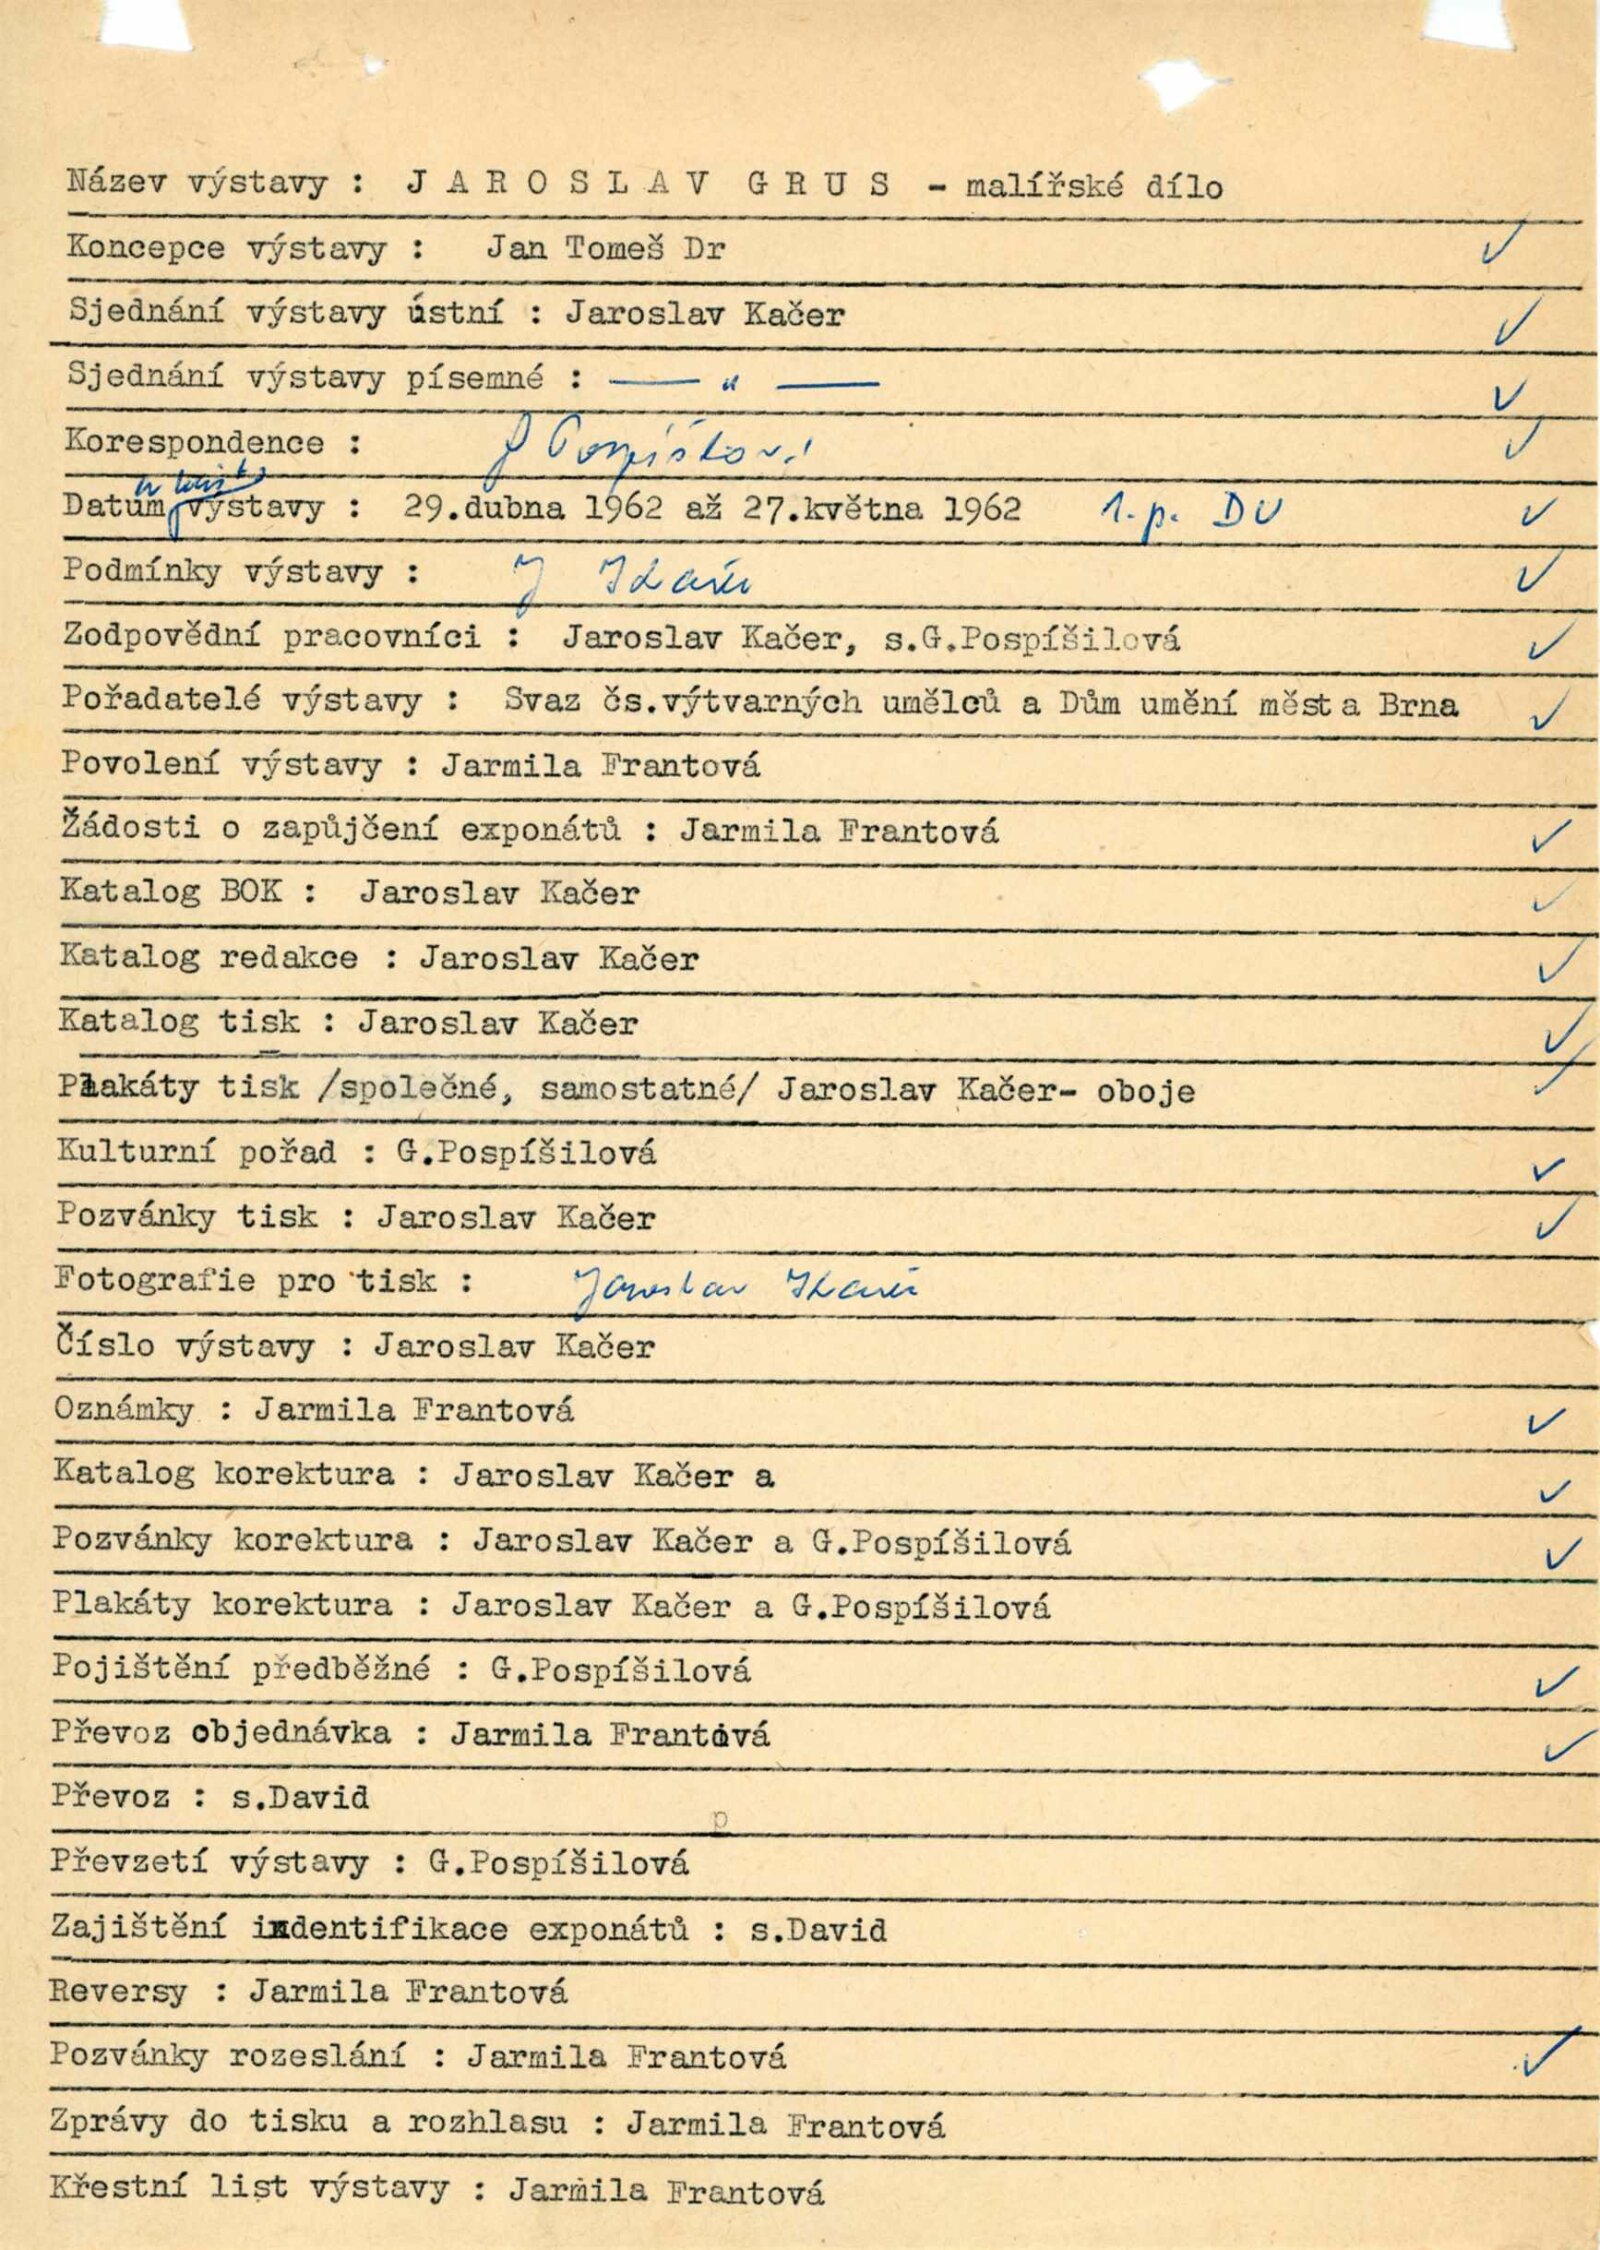 Název výstavy : J A R O S L A V G R U S - malířské dílo
Koncepce výstavy : Jan Tomeš Dr
Sjednání výstavy ústní : Jaroslav Kačer
Sjednání výstavy písemné : — " —
Korespondence :
Datum výstavy : 29.dubna 1962 až 27.května 1962 1. p. DU
Podmínky výstavy : J Kačer
Zodpovědní pracovníci : Jaroslav Kačer, s.G.Pospíšilová
Pořadatelé výstavy : Svaz čs.výtvarných umělců a Dům umění města Brna
Povolení výstavy : Jarmila Frantová
Žádosti o zapůjčení exponátů : Jarmila Frantová
Katalog BOK : Jaroslav Kačer
Katalog redakce : Jaroslav Kačer
Katalog tisk : Jaroslav Kačer
Plakáty tisk /společné, samostatné/ Jaroslav Kačer- oboje
Kulturní pořad : G.Pospíšilová
Pozvánky tisk : Jaroslav Kačer
Fotografie pro tisk : Jaroslav Kačer
Číslo výstavy : Jaroslav Kačer
Oznámky : Jarmila Frantová
Katalog korektura : Jaroslav Kačer a
Pozvánky korektura : Jaroslav Kačer a G.Pospíšilová
Plakáty korektura : Jaroslav Kačer a G.Pospíšilová
Pojištění předběžné : G.Pospíšilová
Převoz objednávka : Jarmila Frantová
Převoz : s.David
p
Převzetí výstavy : G.Pospíšilová
Zajištění indentifikace exponátů : s.David
Reversy : Jarmila Frantová
Pozvánky rozeslání : Jarmila Frantová
Zprávy do tisku a rozhlasu : Jarmila Frantová
Křestní list výstavy : Jarmila Frantová